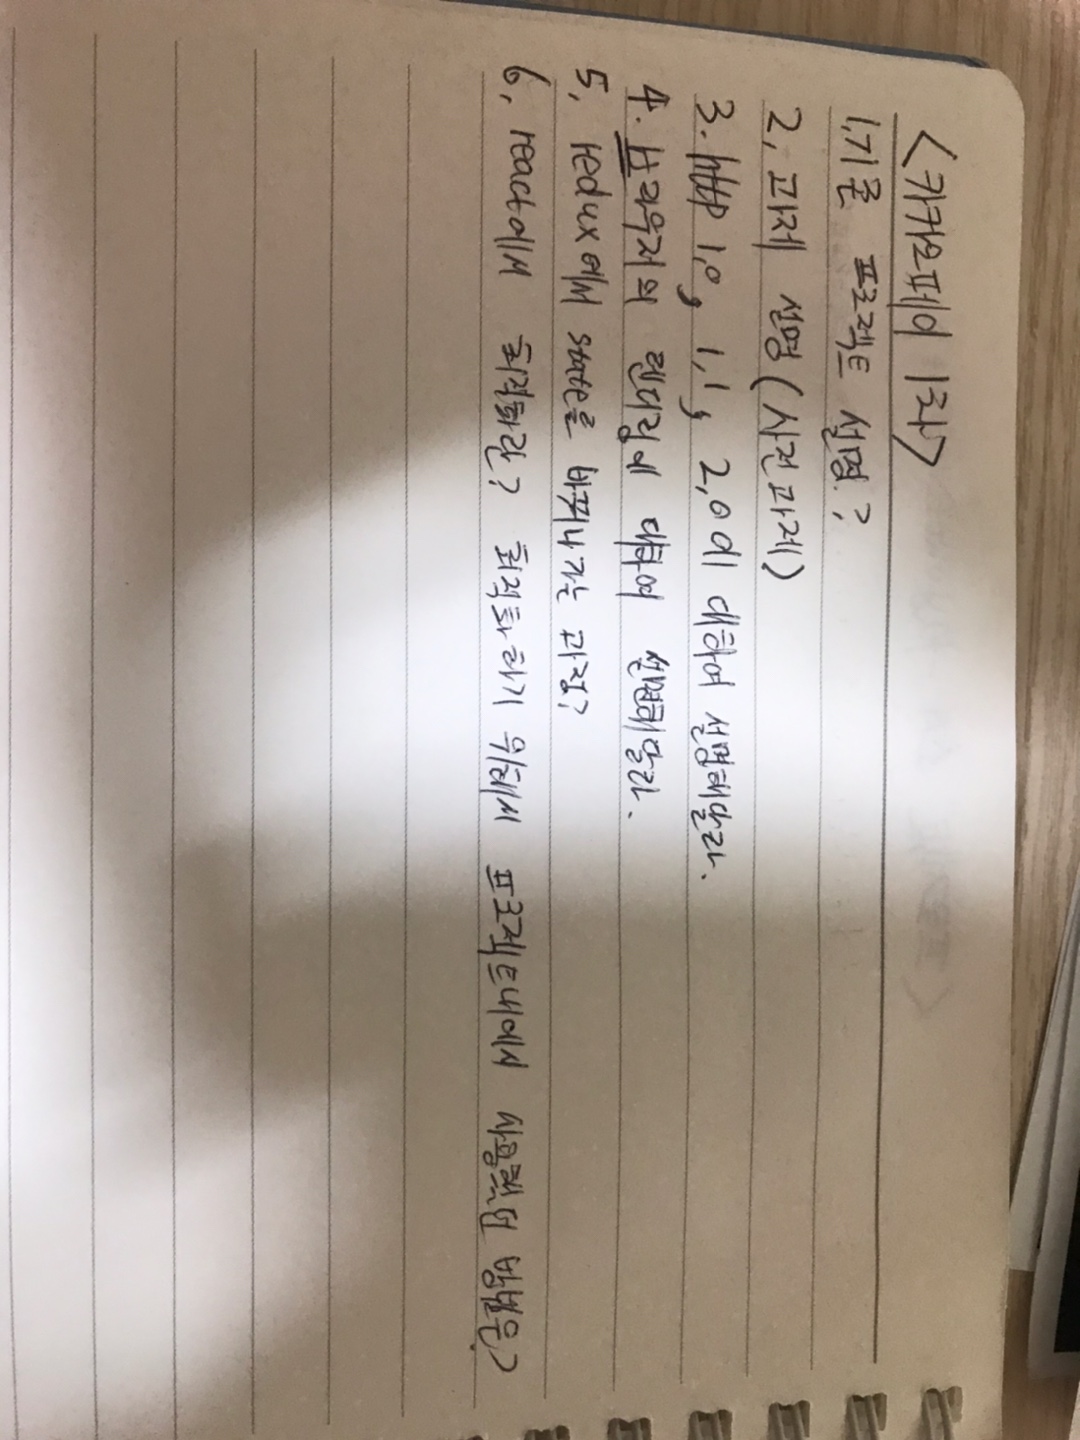 <카카오페이 1차>
1, 기존 프로젝트 설명?
2, 과제 설명 (사전과제)
3. http 1.0, 1.1, 2.0에 대하여 설명해달라.
4. 브라우저의 렌더링에 대하여 설명해달라.
5, redux에서 state로 바뀌나가는 과정?
6, react에서 최적화란? 최적화하기 위해서 프로젝트내에서 사용했던 방법은?